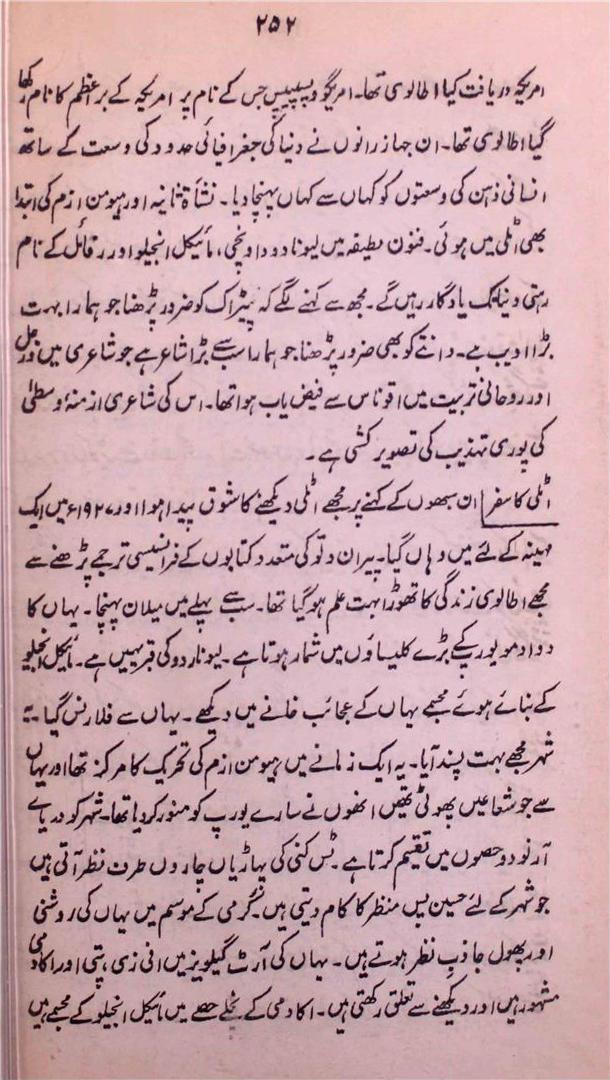 ۲۵۲
امریکہ دریافت کیا اطالوی تھا۔ امریگو ویسپیس جس کے نام پر امریکہ کے برّ اعظم کا نام رکھا
گیا اطالوی تھا۔ ان جہاز رانوں نے دنیا کی جغرافیائی حدود کی وسعت کے ساتھ
انسانی ذہن کی وسعتوں کو کہاں سے کہاں پہنچا دیا۔ نشأۃ ثانیہ اور ہیومن ازم کی ابتدا
بھی اٹلی میں ہوئی۔ فنون لطیفہ میں لیونا دو داونچی، مائیکل انجیلو اور رفائل کے نام
رہتی دنیا تک یادگار رہیں گے۔ مجھ سے کہنے لگے کہ پیٹراک کو ضرور پڑھنا جو ہمارا بہت
بڑا ادیب ہے۔ دانتے کو بھی ضرور پڑھنا جو ہمارا سب سے بڑا شاعر ہے جو شاعری میں ورجل
اور روحانی تربیت میں اقوناس سے فیض یاب ہوا تھا۔ اس کی شاعری ازمنۂ وسطیٰ
کی پوری تہذیب کی تصویر کشی ہے۔
اٹلی کا سفر ان سبھوں کے کہنے پر مجھے اٹلی دیکھنے کا شوق پیدا ہوا اور ۱۹۲۷ء میں ایک
مہینہ کے لئے میں وہاں گیا۔ پیران دلو کی متعدد کتابوں کے فرانسیسی ترجمے پڑھنے سے
مجھے اطالوی زندگی کا تھوڑا بہت علم ہو گیا تھا۔ سب سے پہلے میں میلان پہنچا۔ یہاں کا
دوادمو یورپ کے بڑے کلیساؤں میں شمار ہوتا ہے۔ لیونا ردو کی قبر یہیں ہے۔ مائیکل انجیلو
کے بنائے ہوئے مجسمے یہاں کے عجائب خانے میں دیکھے۔ یہاں سے فلارنس گیا۔ یہ
شہر مجھے بہت پسند آیا۔ یہ ایک زمانے میں ہیومن ازم کی تحریک کا مرکز تھا اور یہاں
سے جو شعاعیں پھوٹی تھیں انھوں نے سارے یورپ کو منور کر دیا تھا۔ شہر کو دریاے
آرنو دو حصوں میں تقسیم کرتا ہے۔ ٹس کنی کی پہاڑیاں چاروں طرف نظر آتی ہیں
جو شہر کے لئے حسین پس منظر کا کام دیتی ہیں۔ گرمی کے موسم میں یہاں کی روشنی
اور پھول جاذبِ نظر ہوتے ہیں۔ یہاں کی آرٹ گیلریز میں افی زی، پتی اور اکادمی
مشہور ہیں اور دیکھنے سے تعلق رکھتی ہیں۔ اکادمی کے نچلے حصے میں مائیکل انجیلو کے مجسمے ہیں